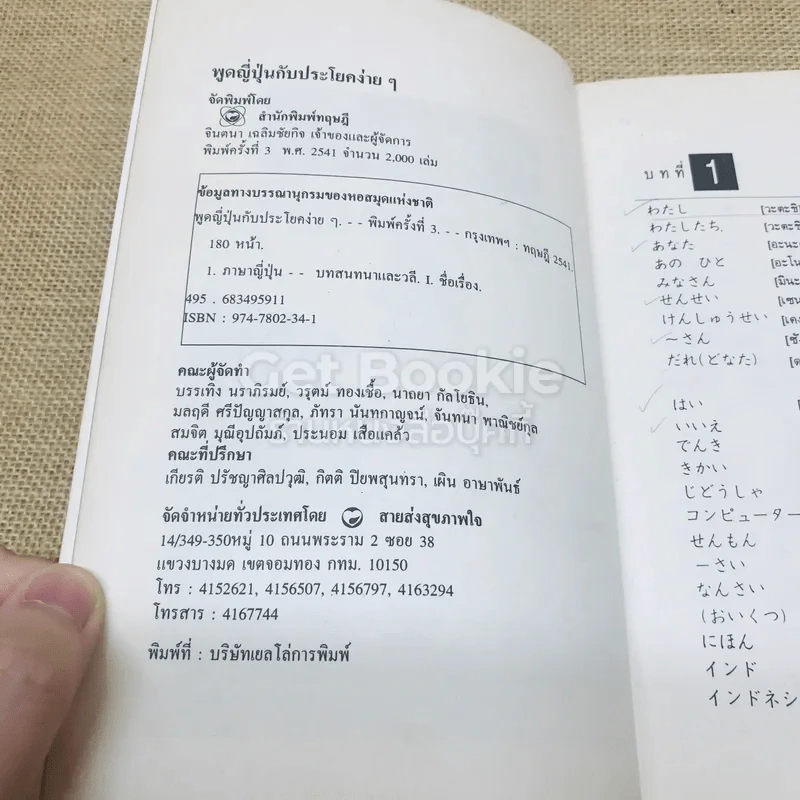 พูดญี่ปุ่นกับประโยคง่าย ๆ
จัดพิมพ์โดย
สำนักพิมพ์ทฤษฎี
จินตนา เฉลิมชัยกิจ เจ้าของและผู้จัดการ
พิมพ์ครั้งที่ 3 พ.ศ. 2541 จำนวน 2,000 เล่ม
ข้อมูลทางบรรณานุกรมของหอสมุดแห่งชาติ
พูดญี่ปุ่นกับประโยคง่าย ๆ. -- พิมพ์ครั้งที่ 3. -- กรุงเทพฯ : ทฤษฎี 2541.
180 หน้า.
1. ภาษาญี่ปุ่น -- บทสนทนาและวลี. I. ชื่อเรื่อง.
495 . 683495911
ISBN : 974-7802-34-1
คณะผู้จัดทำ
บรรเทิง นราภิรมย์, วรุตม์ ทองเชื้อ, นาถยา กัลโยธิน,
มลฤดี ศรีปัญญาสกุล, ภัทรา นันทกาญจน์, จันทนา พาณิชย์กุล
สมจิต มุณีอุปถัมภ์, ประนอม เสือแคล้ว
คณะที่ปรึกษา
เกียรติ ปรัชญาศิลปวุฒิ, กิตติ ปิยพสุนทรา, เผิน อาษาพันธ์
จัดจำหน่ายทั่วประเทศโดย สายส่งสุขภาพใจ
14/349-350หมู่ 10 ถนนพระราม 2 ซอย 38
แขวงบางมด เขตจอมทอง กทม. 10150
โทร : 4152621, 4156507, 4156797, 4163294
โทรสาร : 4167744
พิมพ์ที่ : บริษัทเยลโล่การพิมพ์
Get Bookie
บทที่ 1
わたし [วะตะชิ
わたしたち. [วะตะชิ
あなた [อะนะ
あの ひと [อะโน
みなさん [มินะ
せんせい [เซน
けんしゅうせい [เคง
～さん [ซัง
だれ(どなた)
はい
いいえ
でんき
きかい
じどうしゃ
コンピューター
せんもん
ーさい
なんさい
(おいくつ)
にほん
インド
インドネシ